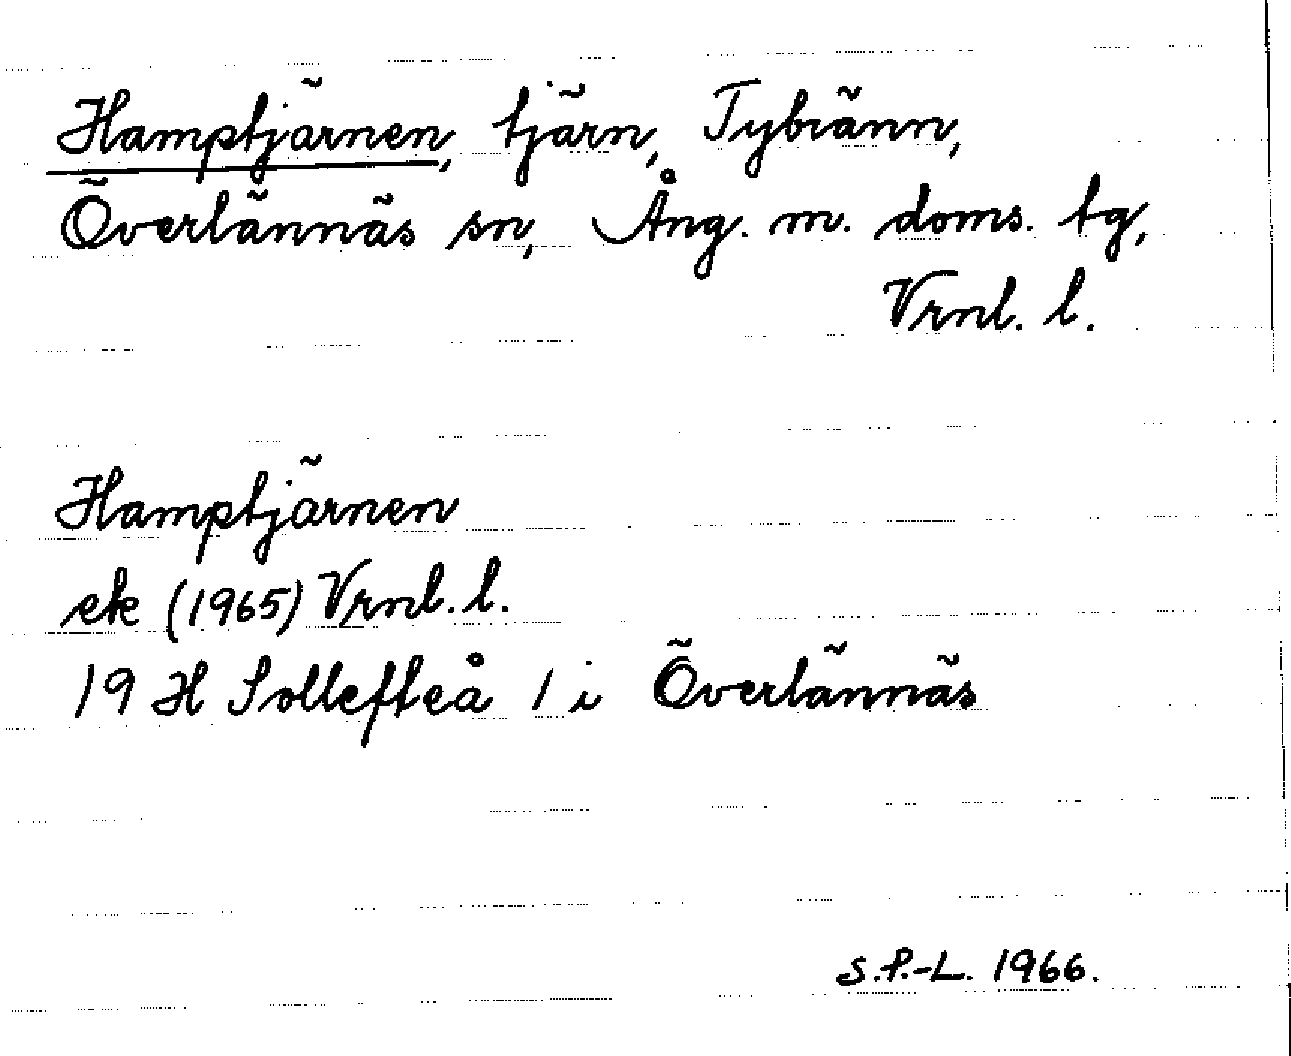 Hamptjärnen, tjärn, Tybränn,
Överlännäs sn, Ång. m. doms. tg,
Vrnl. l.
Hamptjärnen
ek (1965) Vrnl. l.
19 H Sollefteå 1 i Överlännäs
S.P.-L. 1966.